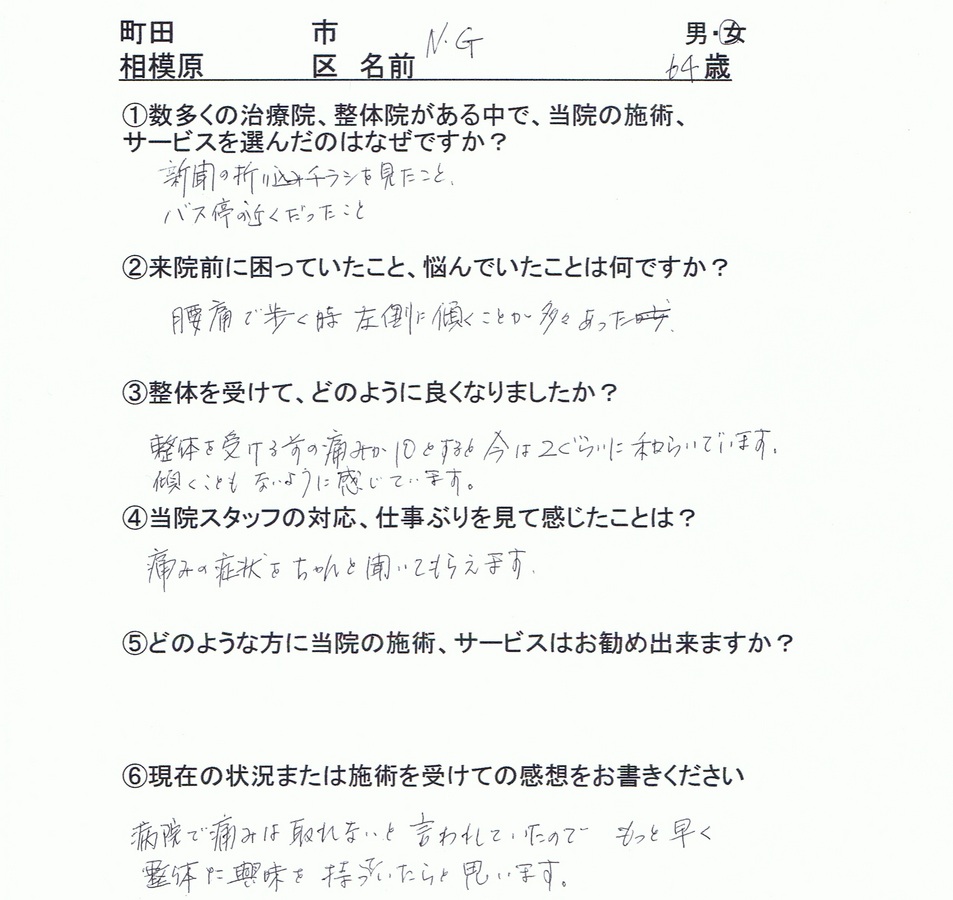 町田 市 N.G 男・女
相模原 区 名前 64歳
①数多くの治療院、整体院がある中で、当院の施術、
サービスを選んだのはなぜですか?
新聞の折り込みチラシを見たこと、
バス停の近くだったこと
②来院前に困っていたこと、悩んでいたことは何ですか?
腰痛で歩く時 左側に傾くことが多々あった
③整体を受けて、どのように良くなりましたか?
整体を受ける前の痛みが10とすると今は2ぐらいに和らいでいます。
傾くことも ないように感じています。
④当院スタッフの対応、仕事ぶりを見て感じたことは?
痛みの症状をちゃんと聞いてもらえます。
⑤どのような方に当院の施術、サービスはお勧め出来ますか?
⑥現在の状況または施術を受けての感想をお書きください
病院で痛みは取れないと言われていたので もっと早く
整体に興味を持っていたらと思います。